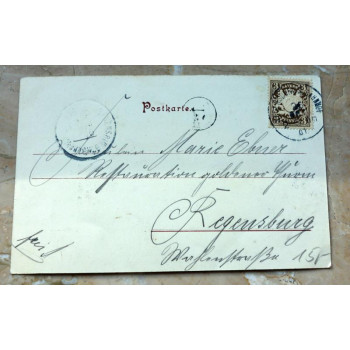 Postkarte
Fräulein Marie Ebner
Restauration goldener Turm
Regensburg
Wahlenstraße 15
frei